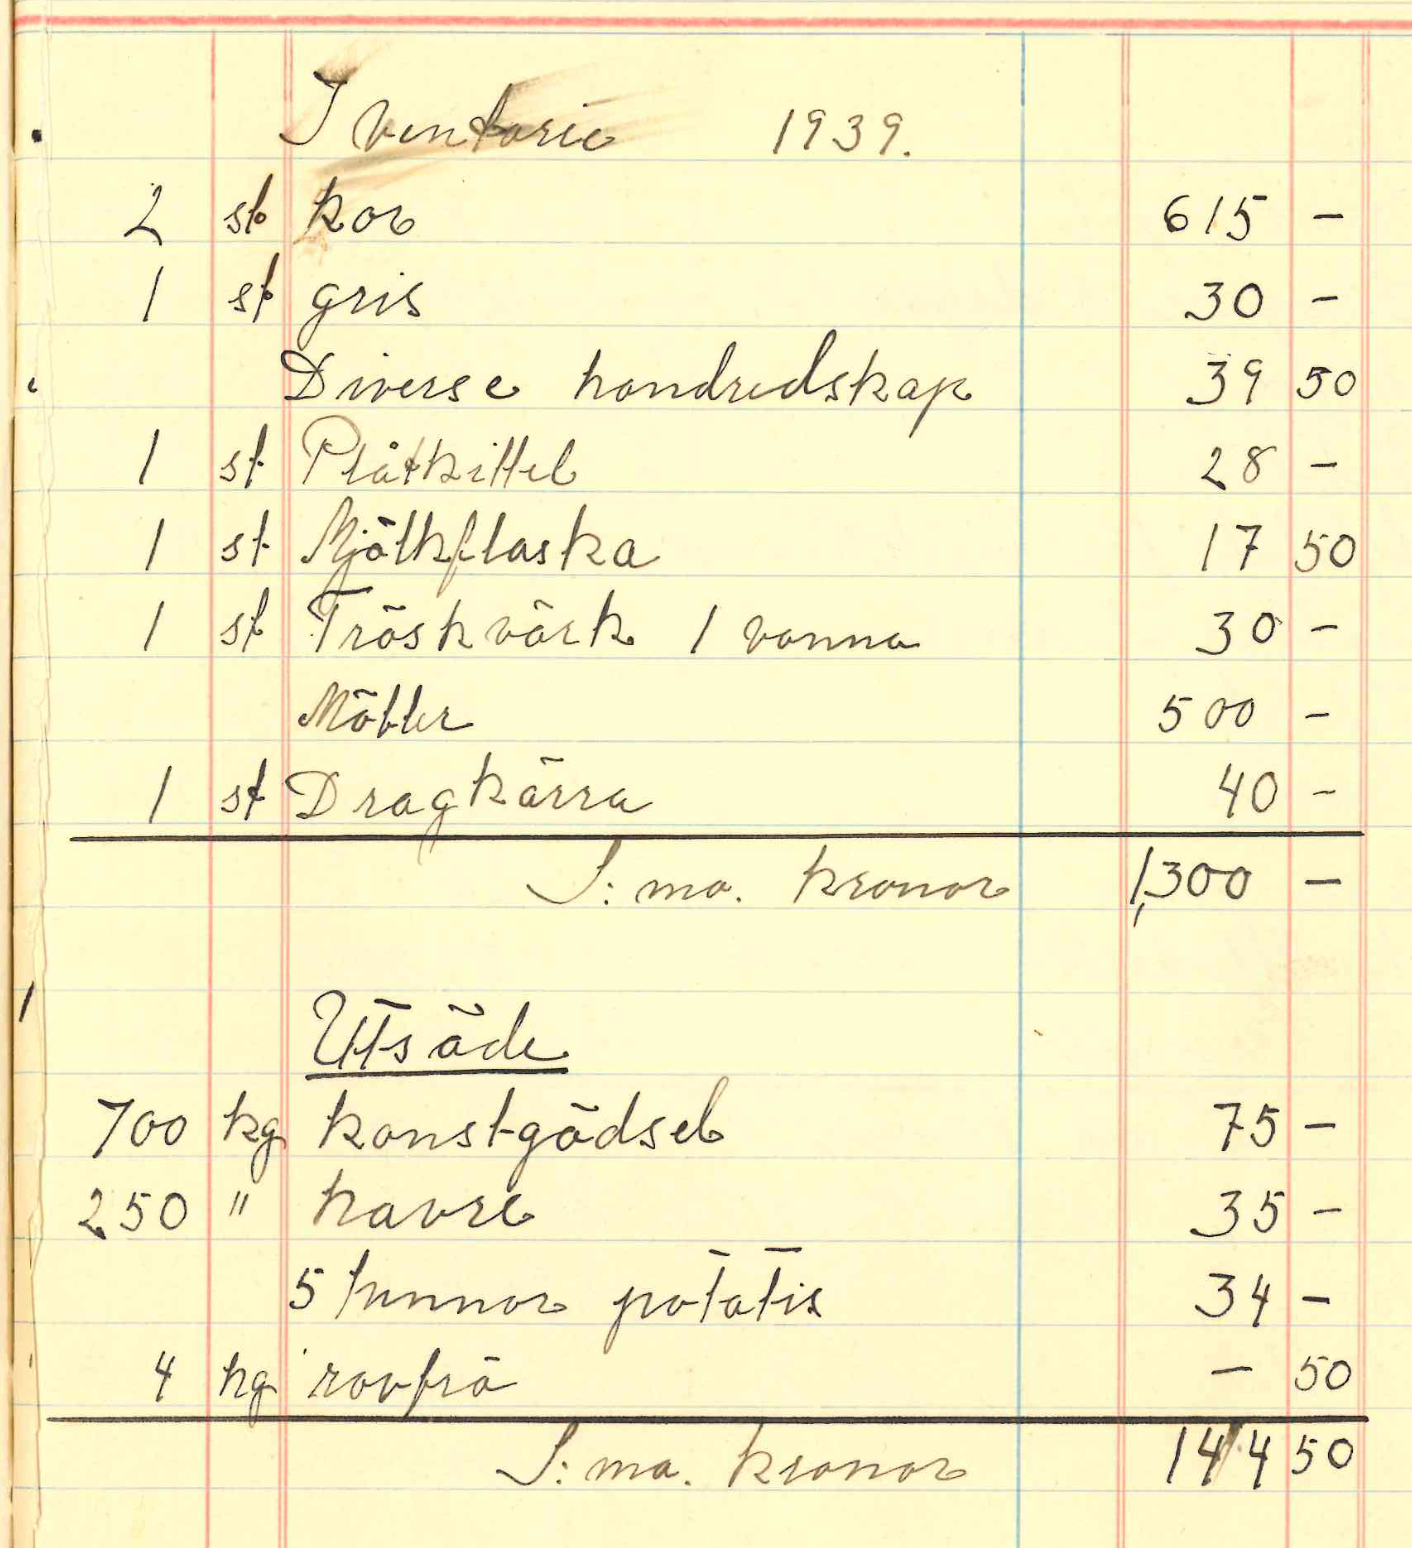 Iventarie 1939.
2 st kor 615 -
1 st gris 30 -
Diverse handredskap 39 50
1 st Plåtkittel 28 -
1 st Mjölkflaska 17 50
1 st Tröskvärk 1 vanna 30 -
Möbler 500 -
1 st Dragkärra 40 -
S:ma. kronor 1,300 -
Utsäde
700 kg konstgödsel 75 -
250 " havre 35 -
5 tunnor potatis 34 -
4 hg rovfrö - 50
S:ma. kronor 144 50